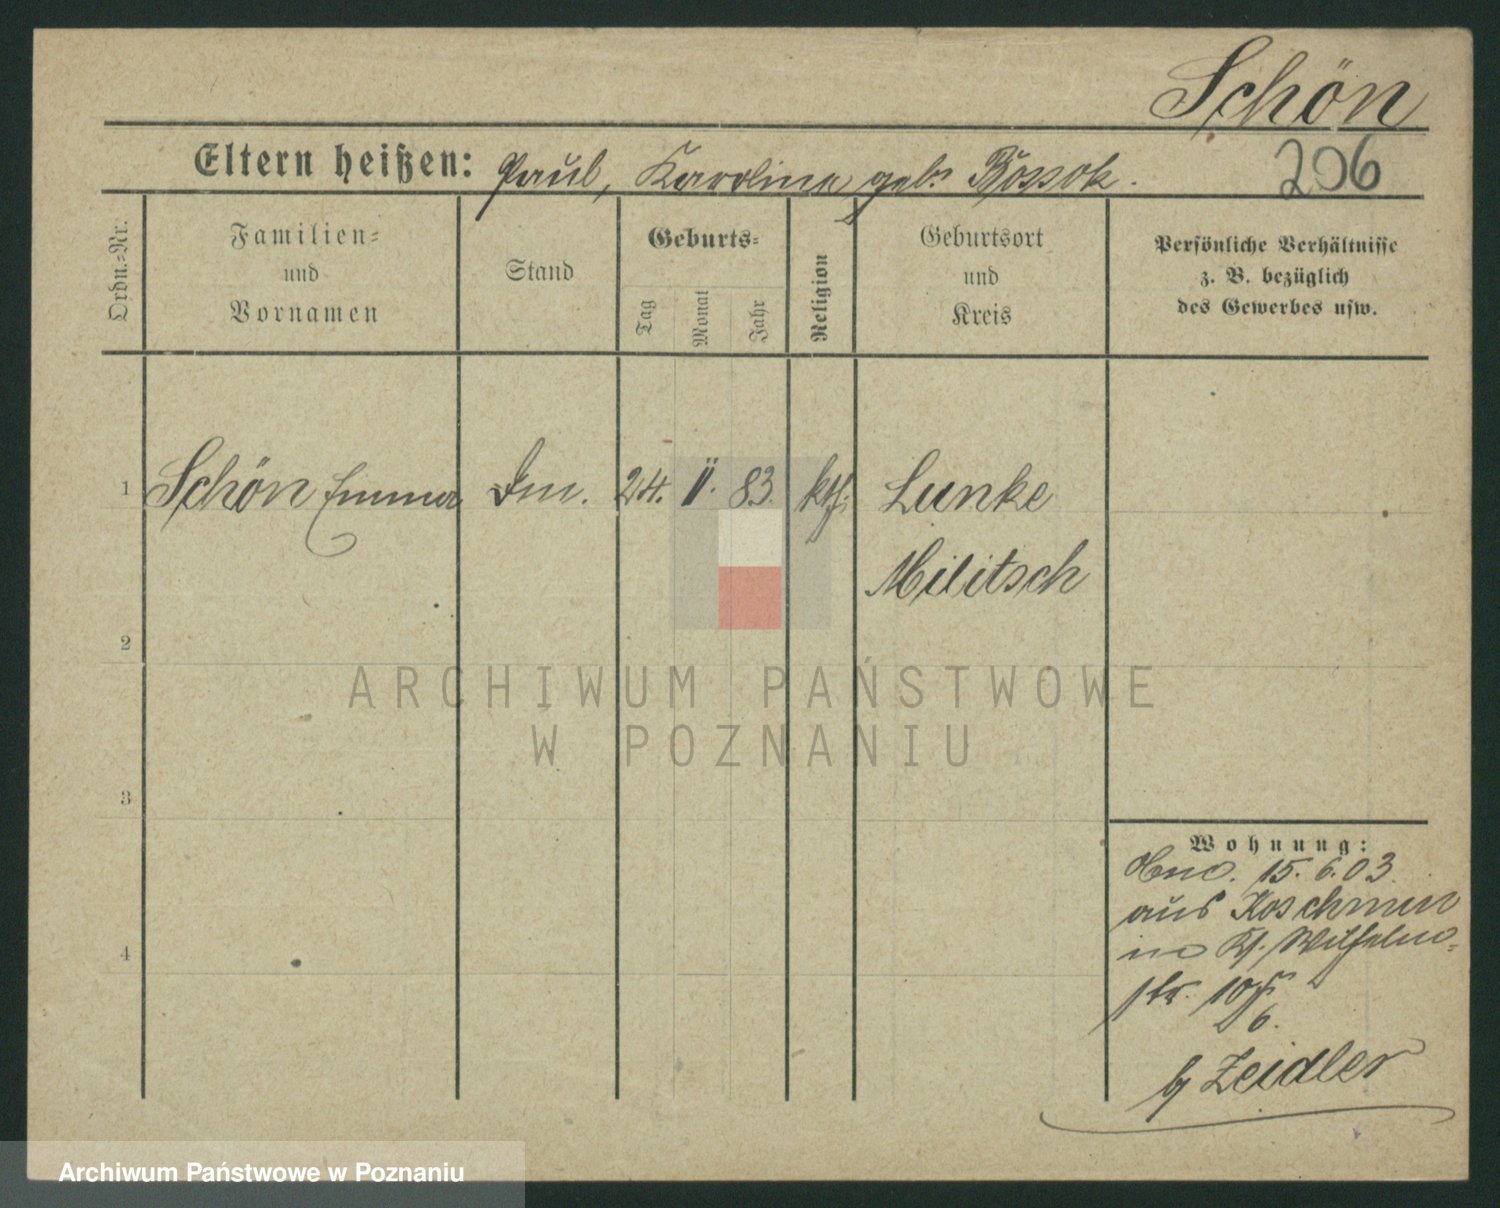 Schön
206
Eltern heißen: Paul, Karoline geb.
Ordn.-Nr.
Familien-
und
Vornamen
Stand
Geburts-
Tag
Monat
Jahr
Religion
Geburtsort
und
Kreis
Persönliche Verhältnisse
z. B. bezüglich
des Gewerbes usw.
1 Schön Emma 24. II. 83. kth. Lunke
Militsch
2
ARCHIWUM PAŃSTWOWE
W POZNANIU
3
Wohnung:
15.6.03.
aus Koschmin
Wilhelm-
str. 10
6.
b/ Zeidler
4
Archiwum Państwowe w Poznaniu